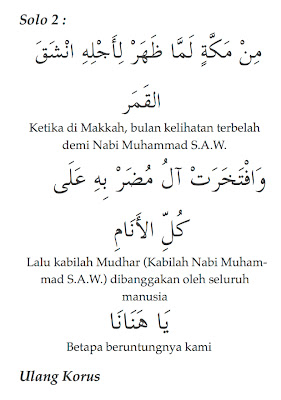 Solo 2 :
مِنْ مَكَّةٍ لَمَّا ظَهَرْ لِأَجْلِهِ انْشَقَ
القَمَر
Ketika di Makkah, bulan kelihatan terbelah
demi Nabi Muhammad S.A.W.
وَافْتَخَرَتْ آلُ مُضَرْ بِهِ عَلَى
كُلِّ الأَنَامِ
Lalu kabilah Mudhar (Kabilah Nabi Muham-
mad S.A.W.) dibanggakan oleh seluruh
manusia
يَا هَنَانَا
Betapa beruntungnya kami
Ulang Korus